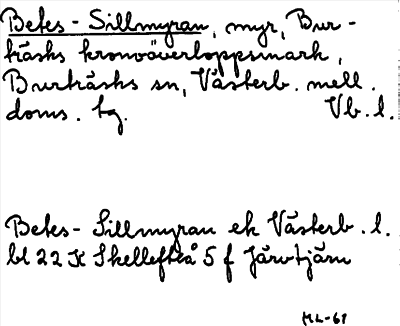 Betes-Sillmyran, myr, Bur-
träsks kronoöverloppsmark,
Burträsks sn, Västerb. mell.
doms. tg. Vb. l.
Betes-Sillmyran ek Västerb. l.
bl 22 K Skellefteå 5 f Järvtjärn
ML-69